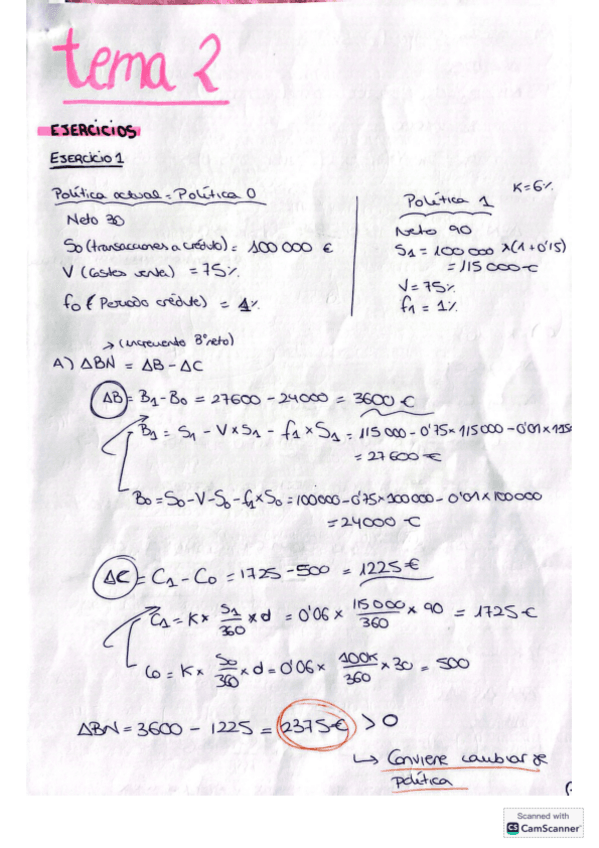 tema 2
EJERCICIOS
EJERCICIO 1
K=6%
Política actual = Política 0
Neto 30
So (transacciones a crédito) = 100 000 €
V (Costes venta) = 75%
fo ( Periodo crédito) = 1%
Política 1
Neto 90
S1 = 100 000 x(1+0'15)
= 115 000 €
V = 75%
f1 = 1%
→ (incremento Bº neto)
A) ΔBN = ΔB - ΔC
ΔB = B1 - B0 = 27600 - 24000 = 3600 €
B1 = S1 - V x S1 - f1 x S1 = 115 000 - 0'75 x 115 000 - 0'01 x 1150
= 27600 €
Bo = So - V - So - f1 x So = 100000 - 0'75 x 100000 - 0'01 x 100000
= 24000 €
ΔC = C1 - Co = 1725 - 500 = 1225 €
C1 = K x S1/360 x d = 0'06 x 115000/360 x 90 = 1725 €
Co = K x So/360 x d = 0'06 x 100K/360 x 30 = 500
ΔBN = 3600 - 1225 = 2375 € > 0
↳ Conviene cambiar de
política
Scanned with
CS CamScanner